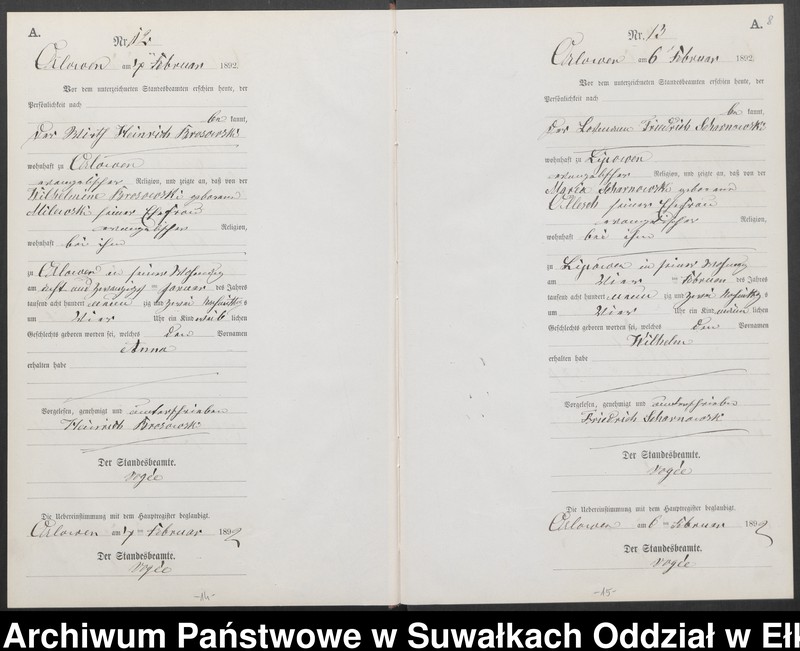 A.
Nr. 12
Orlowen am Februar 1892.
Vor dem unterzeichneten Standesbeamten erschien heute, der
Persönlichkeit nach
be kannt,
der Wirth Heinrich Brosowski
wohnhaft zu Orlowen
evangelischer Religion, und zeigte an, daß von der
Wilhelmine Brosowski geborene
Milewski seiner Ehefrau
evangelischer Religion,
wohnhaft bei ihm
zu Orlowen in seiner Wohnung
am acht und zwanzigsten Januar des Jahres
tausend acht hundert neun zig und zwei Nachmittags
um Vier Uhr ein Kind weib lichen
Geschlechts geboren worden sei, welches den Vornamen
Anna
erhalten habe
Vorgelesen, genehmigt und unterschrieben
Heinrich Brosowski
Der Standesbeamte.
Vogée
Die Uebereinstimmung mit dem Hauptregister beglaubigt.
Orlowen am Februar 1892
Der Standesbeamte.
Vogée
-14-
A. 8
Nr. 13
Orlowen am 6 Februar 1892
Vor dem unterzeichneten Standesbeamten erschien heute, der
Persönlichkeit nach
be kannt,
der Losmann Friedrich Scharnowski
wohnhaft zu Lipowen
evangelischer Religion, und zeigte an, daß von der
Maria Scharnowski geborene
Ollesch seiner Ehefrau
evangelischer Religion,
wohnhaft bei ihm
zu Lipowen in seiner Wohnung
am Vier ten Februar des Jahres
tausend acht hundert neun zig und zwei Nachmittags
um Vier Uhr ein Kind männ lichen
Geschlechts geboren worden sei, welches den Vornamen
Wilhelm
erhalten habe
Vorgelesen, genehmigt und unterschrieben
Friedrich Scharnowski
Der Standesbeamte.
Vogée
Die Uebereinstimmung mit dem Hauptregister beglaubigt.
Orlowen am 6 ten Februar 1892
Der Standesbeamte.
Vogée
-15-
Archiwum Państwowe w Suwałkach Oddział w Ełk